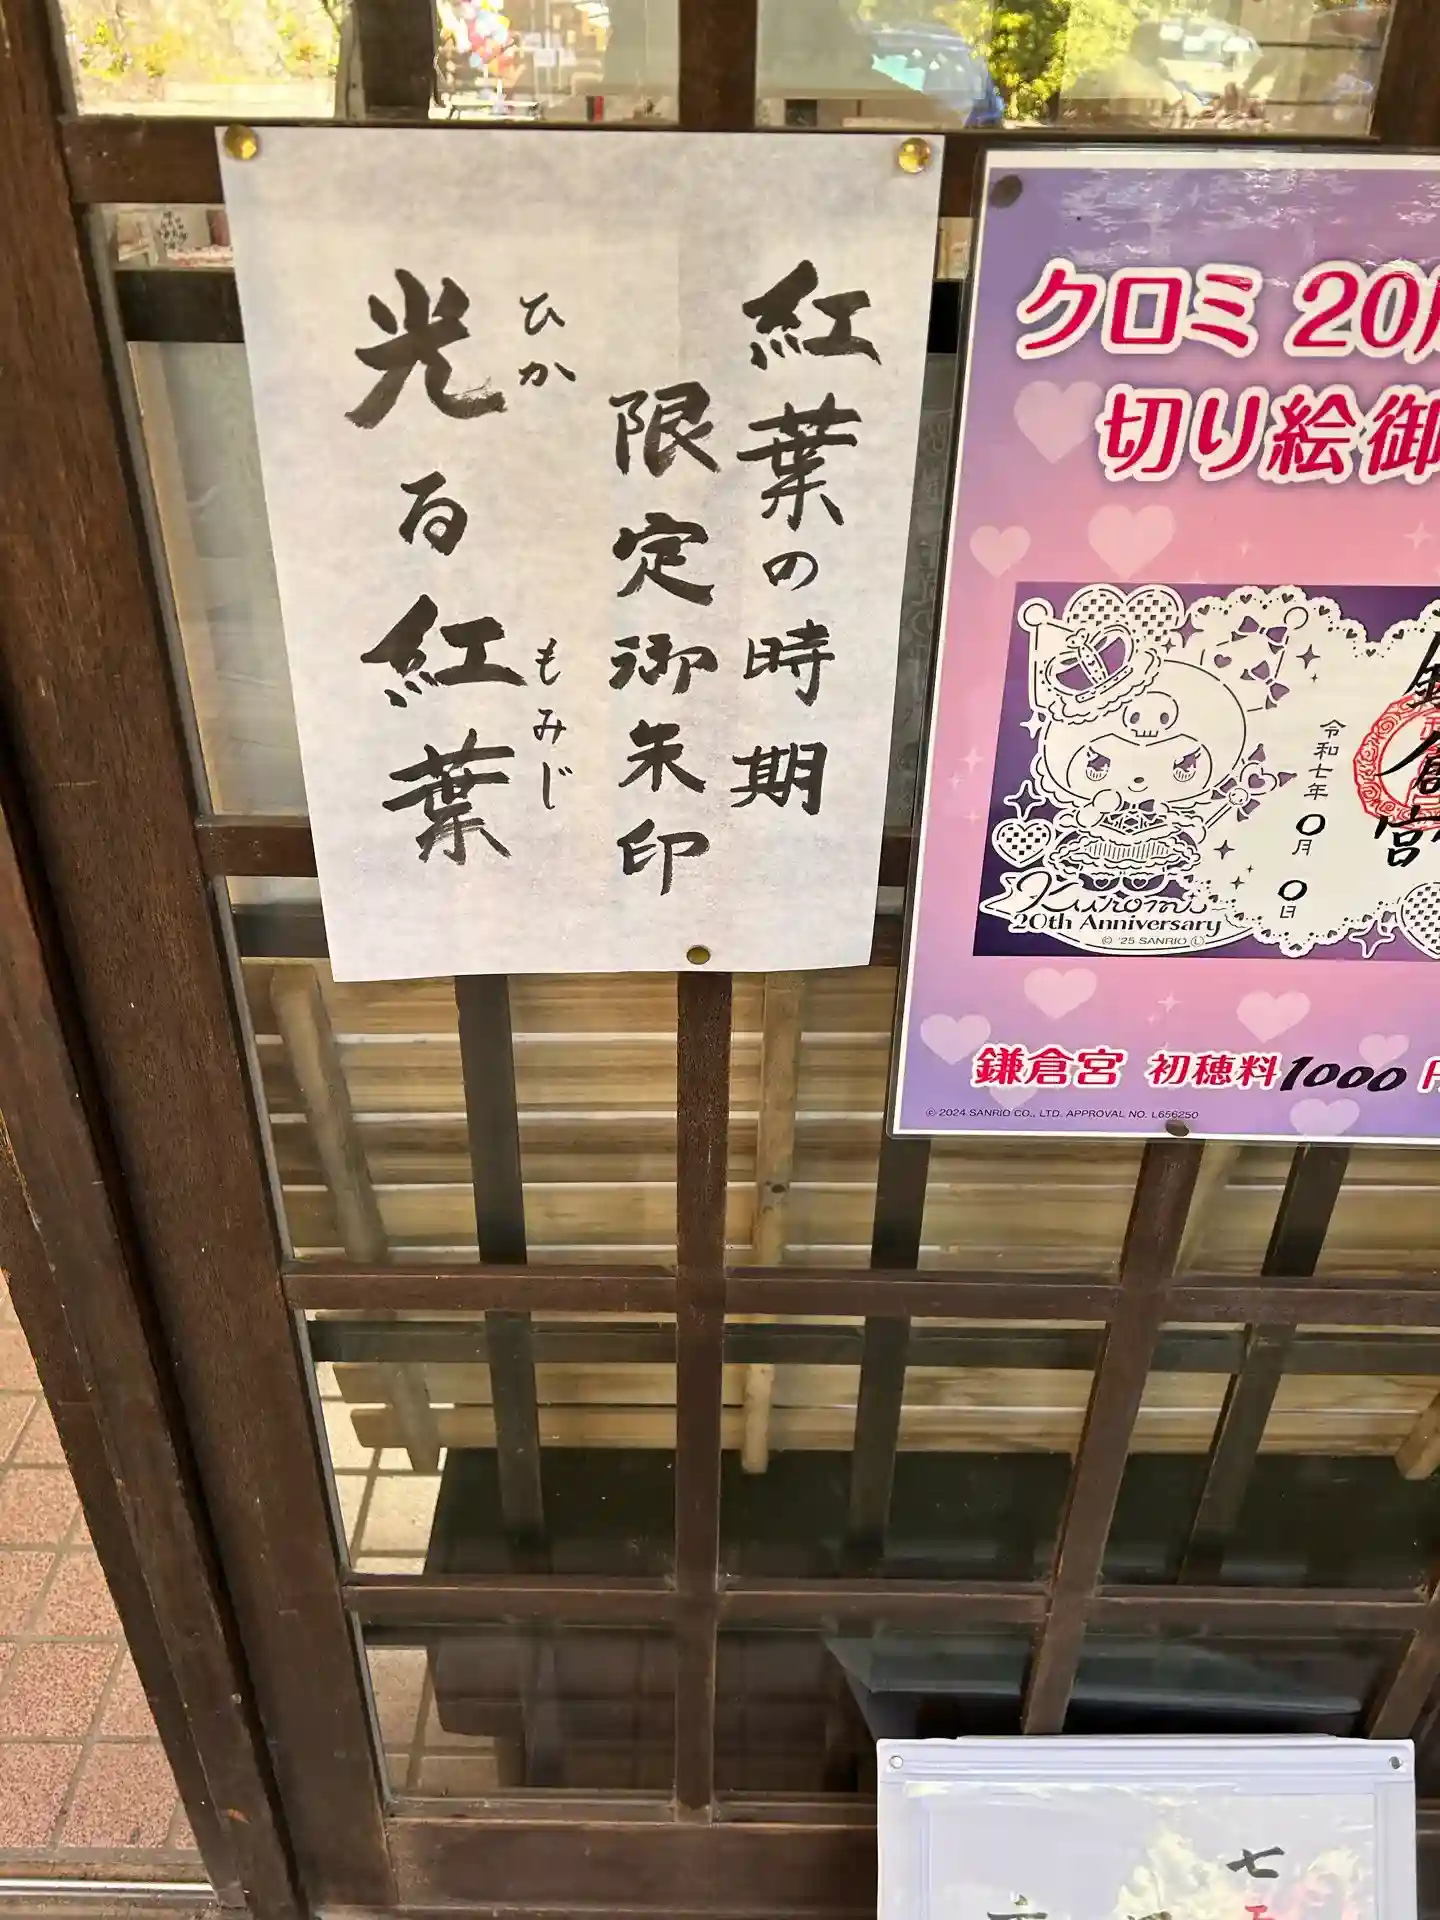 紅葉の時期
限定御朱印
光る紅葉
ひか
もみじ
クロミ 20
切り絵御
令和七年〇月〇日
鎌倉宮
Kuromi
20th Anniversary
© '25 SANRIO Ⓛ
鎌倉宮 初穂料1000円
© 2024 SANRIO CO., LTD. APPROVAL NO. L656250
七